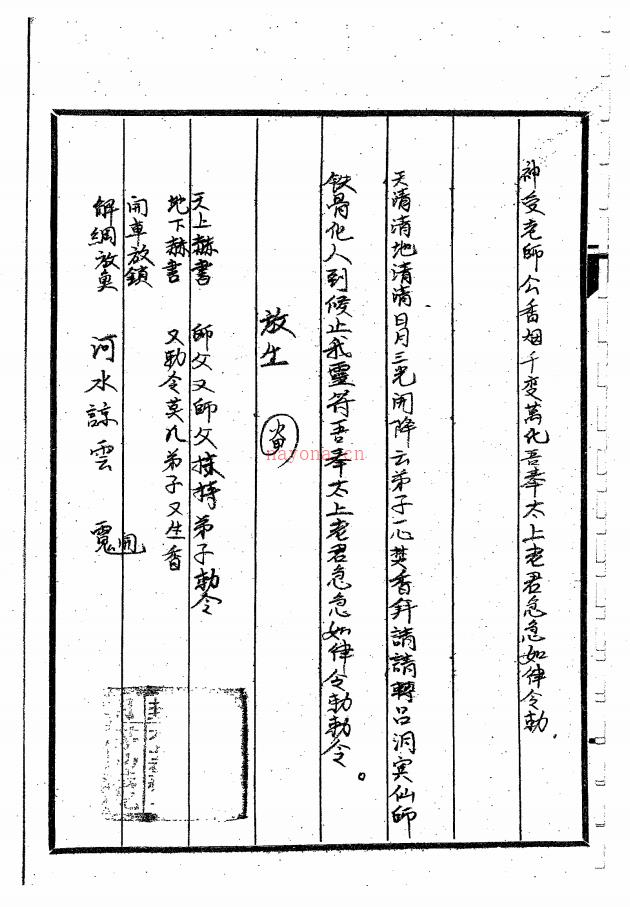 神变老師公香烟千变萬化吾奉太上老君急急如律令勅.
天清清地清清日月三光開降云弟子一心焚香拜請請轉吕洞宾仙師
铁骨化人到候止我靈符吾奉太上老君急急如律令勅勅令。
放生
天上赫書 師父又師父 持弟子勅令
地下赫書 又勅令莫凡弟子又生香
開車放鎖
解網放魚 河水諒雲
開
nayona.cn